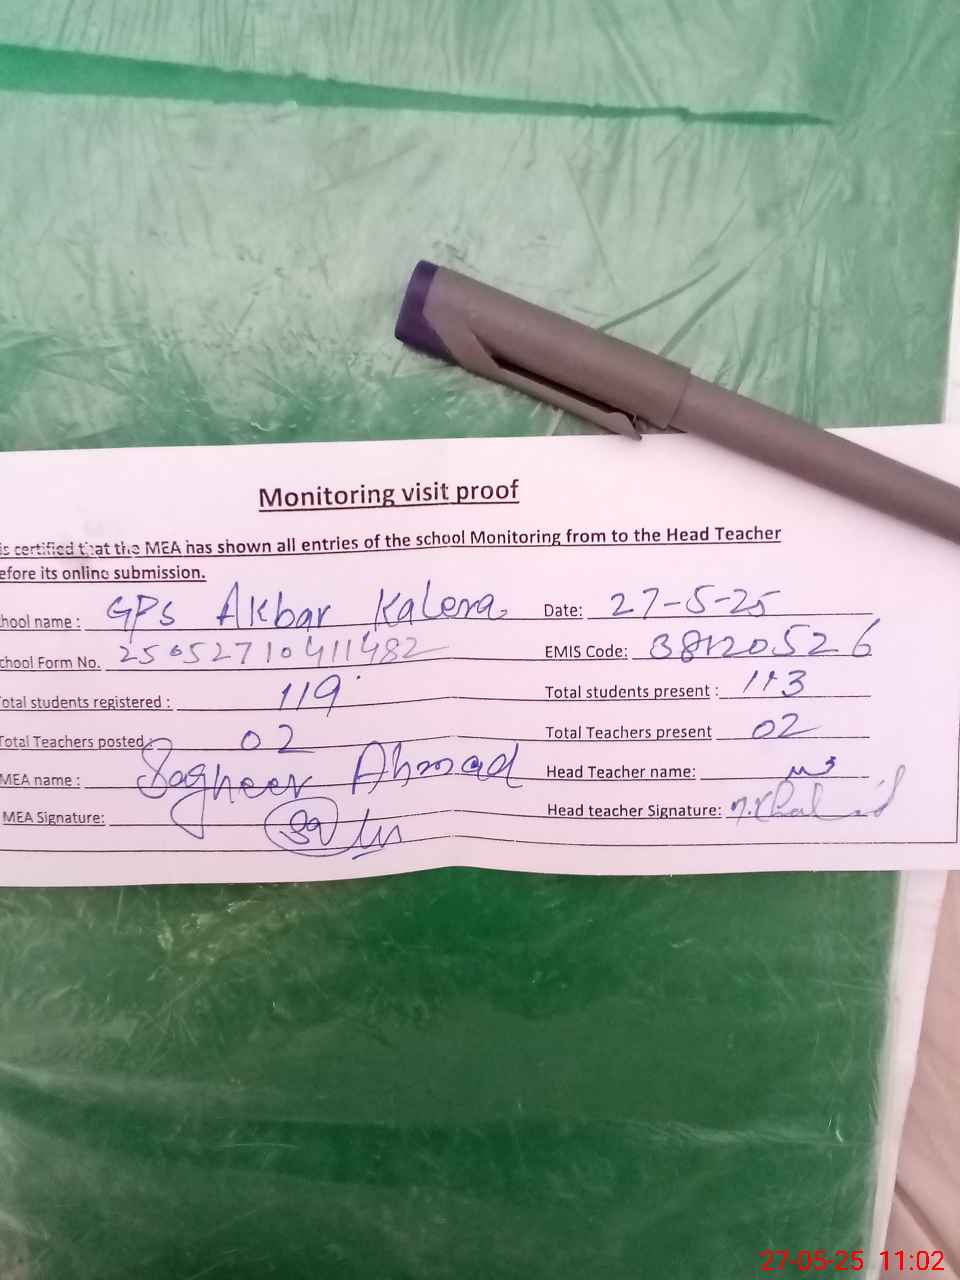 Monitoring visit proof
is certified that the MEA has shown all entries of the school Monitoring from to the Head Teacher
efore its online submission.
hool name : GPS Akbar Kalera Date: 27-5-25
chool Form No. 25052710411482 EMIS Code: 38120526
otal students registered : 119 Total students present : 113
Total Teachers posted : 02 Total Teachers present 02
MEA name : Sagheer Ahmad Head Teacher name:
MEA Signature: Head teacher Signature: M.Khalid
27-05-25 11:02